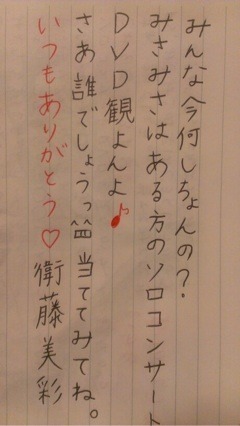 みんな今何しちょんの？
みさみさはある方のソロコンサート
DVD観よんよ♪
さあ誰でしょうっ 当ててみてね。
いつもありがとう♡ 衛藤美彩